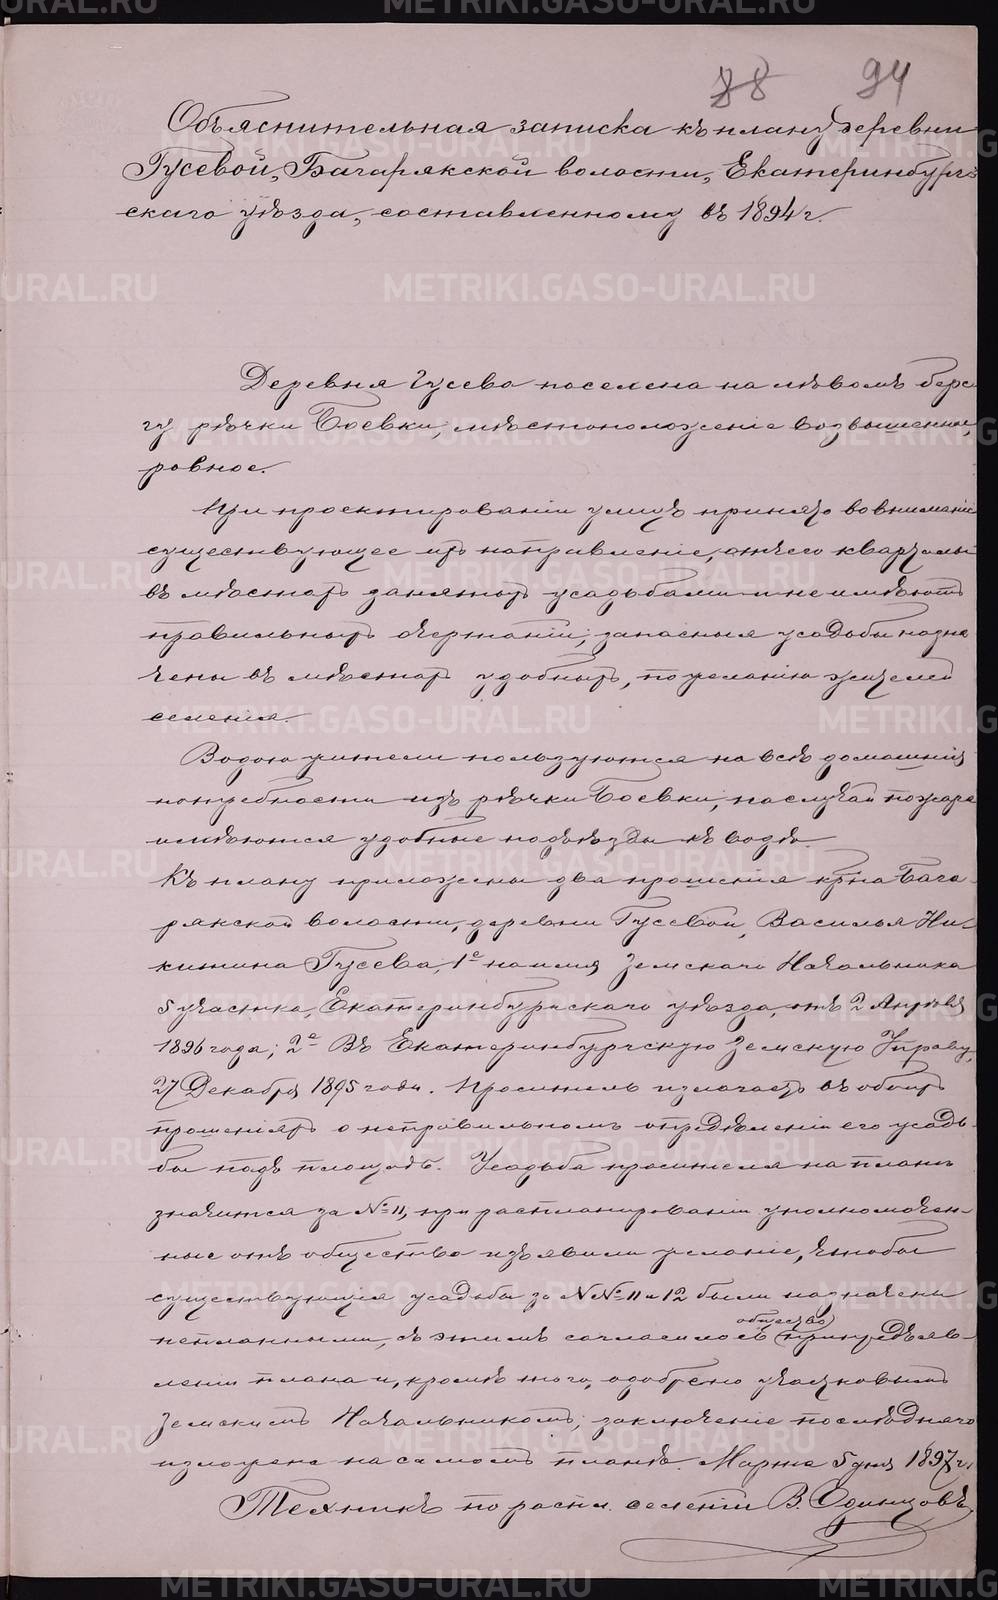 88 94
Объяснительная записка къ плану деревни
Гусевой, Багарякской волости, Екатеринбург-
скаго уѣзда, составленному въ 1894 г.
Деревня Гусева поселена на лѣвомъ бере-
гу рѣчки Боевки, мѣстоположеніе возвышенное,
ровное.
При проектированіи улицъ принято во вниманіе
существующее ихъ направленіе, отчего кварталы
въ мѣстахъ занятыхъ усадьбами и не имѣютъ
правильныхъ очертаній; запасныя усадьбы назна
чены въ мѣстахъ удобныхъ, по желанію жителей
селенія.
Водою жители пользуются на всѣ домашнія
потребности изъ рѣчки Боевки, на случай пожара
имѣются удобные подъѣзды къ водѣ.
Къ плану приложены два прошенія кр-на Бага-
рякской волости, деревни Гусевой, Василья Ни-
китина Гусева, 1е на имя Земскаго Начальника
5 участка, Екатеринбургскаго уѣзда, отъ 2 Апрѣля
1896 года; 2е Въ Екатеринбургскую Земскую Управу,
27 Декабря 1895 года. Проситель излагаетъ въ обоихъ
прошеніяхъ о неправильномъ опредѣленіи его усадь-
бы подъ площадь. Усадьба просителя на планѣ
значится за № 11, при распланированіи уполномочен-
ные отъ общества изъявили желаніе, чтобы
существующія усадьбы за №№ 11 и 12 были назначены
непланными, съ этимъ согласилось общество при предъяв-
леніи плана и, кромѣ того, одобрено участковымъ
Земскимъ Начальникомъ; заключеніе послѣдняго
изложено на самомъ планѣ. Марта 5 дня 1897 г.
Техникъ по распл. селеній В. Одинцовъ
METRIKI.GASO-URAL.RU